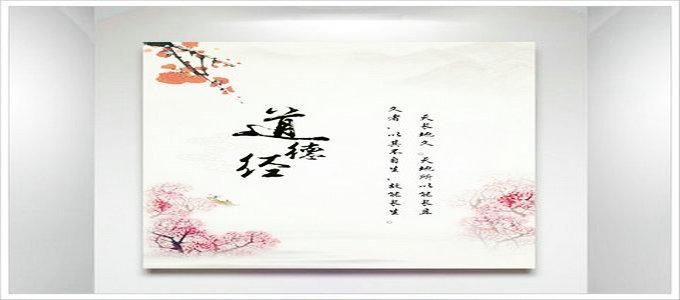 道德经
天长地久。天地所以能长且
久者，以其不自生，故能长生。